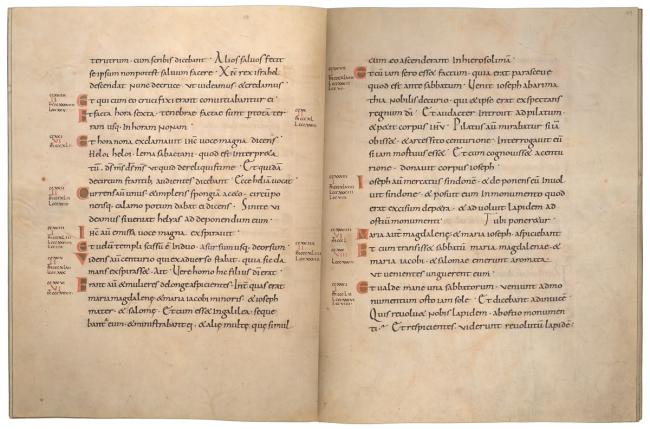 terutrum · cum scribis dicebant · Alios saluos fecit
se ipsum non potest saluum facere · XPC rex israhel
descendat nunc decruce · ut uideamus & credamus
Et qui cum eo cruci fixi erant conuitiabantur ei
Et facta hora sexta · tenebrae factae sunt per tota ter
ram usq; in horam nonam ·
Et hora nona exclamauit ihs uoce magna dicens
Heloi heloi · lema sabactani · quod est interpr&a
tū · ds ms ds ms ut quid dereliquisti me · Et quidā
decircum stantib; audientes dicebant · Ecce heliā uocat
Currens aū unus · & implens spongiā ac&o · circūpo
nensq; calamo potum dabat ei dicens · Sinite ui
deamus siueniat helyas ad deponendum eum ·
Ihs aū emissa uoce magna · expirauit ·
Et uelū templi scissū ē induo · a sursum usq; deorsum
Videns aū centurio qui exaduerso stabat · quia sic cla
mans expirass& · ait · Vere homo hic filius dī erat
Erant aū & mulieres delonge aspicientes · In quas erat
maria magdalene · & maria iacobi minoris · & ioseph
mater · & salome · Et cum ess& in galilea · seque
bant eum · & ministrabant ei · & aliae multae quae simul
cum eo ascenderant in hierosolimā ·
Et cū iam sero ess& factum · quia erat parasceue
quod est ante sabbatum · Venit ioseph abarima
thia nobilis decurio · qui & ipse erat expectans
regnum dī · Et audacter introiit adpilatum ·
& p&iit corpus ihu · Pilatus aū mirabatur si iā
obiss& · & arcessito centurione · Interrogauit eū
si iam mortuus ess& · Et cum cognouiss& acentu
rione · donauit corpus ioseph ·
Ioseph aū mercatus sindonē · & deponens eū inuol
uit sindone · & posuit eum in monumento quod
erat excisum dep&ra · & aduoluit lapidem ad
ostiū monumenti · ubi poner&ur ·
Maria aū magdalene & maria ioseph aspiciebant
Et cum transiss& sabbatū maria magdalenae · &
maria iacobi · & salomae emerunt aromata ·
ut uenientes unguerent eum ·
Et ualde mane una sabbatorum · ueniunt admo
numentum orto iam sole · Et dicebant adinuicē
Quis reuolu& nobis lapidem · abostio monumen
ti · Et respicientes · uiderunt reuolutū lapidē ·